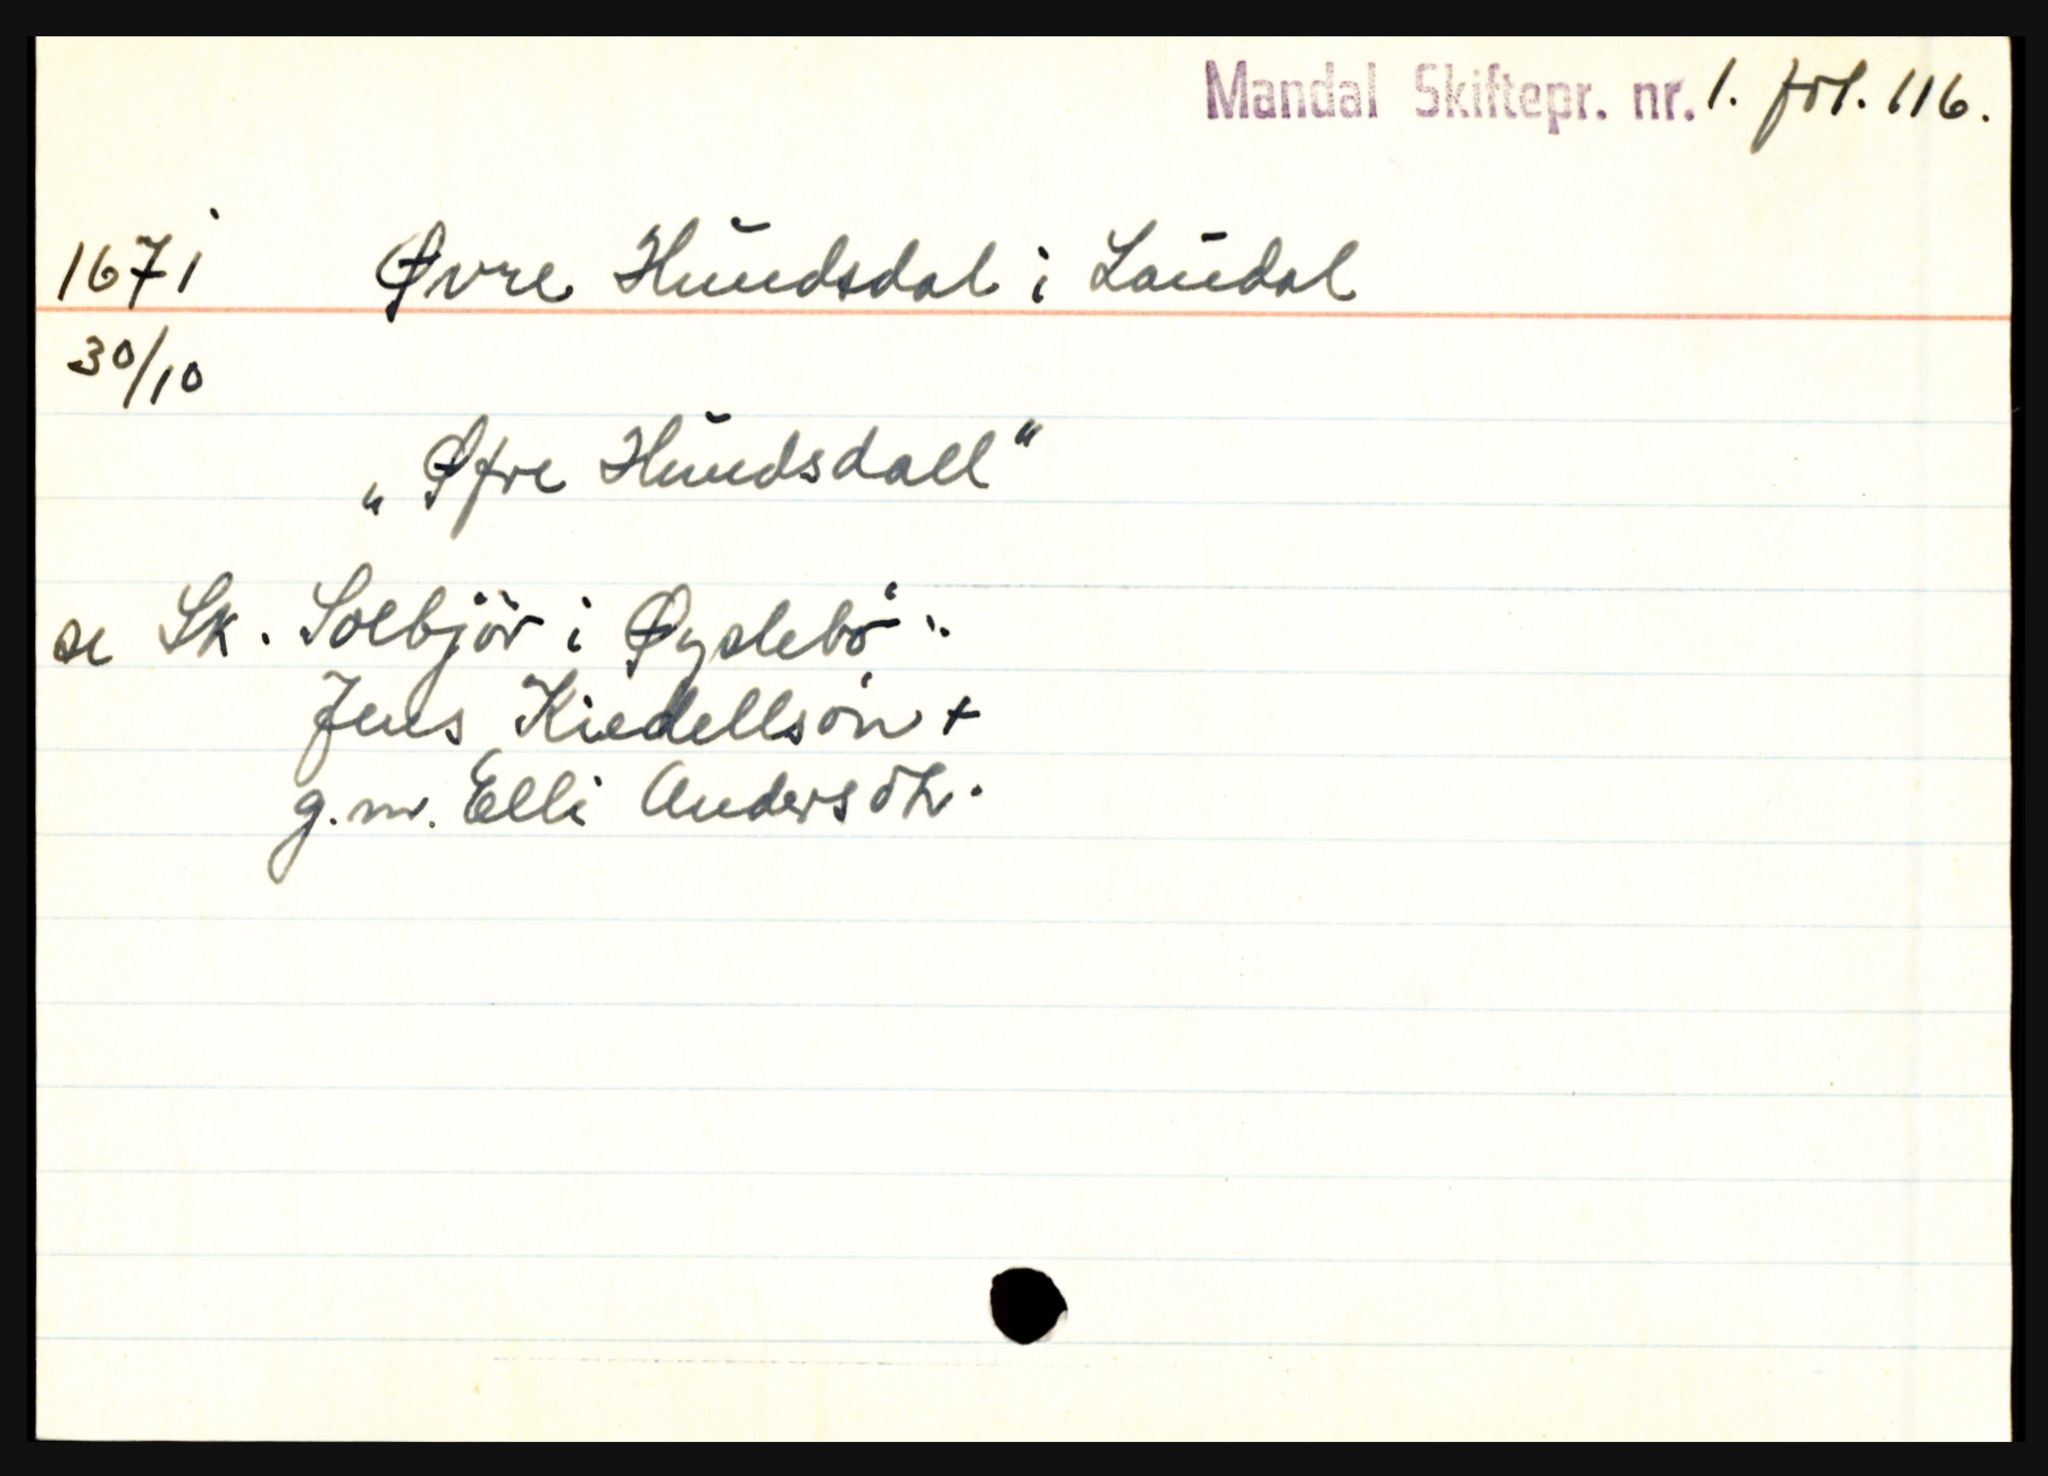 Mandal Skiftepr. nr. 1. fol. 116.
1671 Øvre Hundsdal i Laudal
30/10
„Øfre Hundsdall“
se Sk. Solbjör i Øyslebö:
Jens Kiedellsön +
g.m. Elli Andersöh.